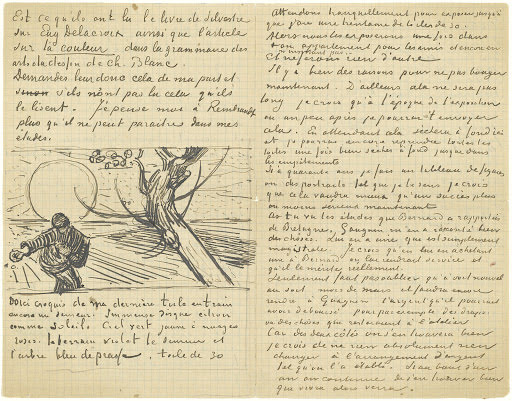 Est ce qu'ils ont lu le livre de Silvestre
sur Eug Delacroix ainsi que l'article
sur la couleur dans la grammaire des
arts du dessin de Ch. Blanc.
Demandes leur donc cela de ma part et
sinon s'ils n'ont pas lu cela qu'ils
le lisent. J'pense moi à Rembrandt
plus qu'il ne peut paraitre dans mes
études.
Voici croquis de ma dernière toile en train
encore un semeur. Immense disque citron
comme soleil. Ciel vert jaune à nuages
roses. le terrain violet le semeur et
l'arbre bleu de prusse. toile de 30
Attendons tranquillement pour exposer jusqu'à
que j'aie une trentaine de toiles de 30.
Alors nous les exposerons une fois dans
ton appartement pour les amis et encore en
et ne ferons rien d'autre
Il y a bien des raisons pour ne pas bouger
maintenant. D'ailleurs cela ne sera pas
long je crois qu'à l'époque de l'exposition
ou un peu après je pourrai t'envoyer
cela. En attendant cela sèchera à fond ici
et je pourrai encore reprendre toutes les
toiles une fois bien sèches à fond jusque dans
les empâtements
Si à quarante ans je fais un tableau de figures
ou des portraits tel que je le sens je crois
que cela vaudra mieux qu'un succès plus
ou moins sérieux maintenant
As tu vu les études que Bernard a rapportées
de Bretagne. Gauguin m'en a raconté bien
des choses. Lui en a une que est simplement
magistrale. Je crois qu'en lui en achetant
une à Bernard on lui rendrait service et
qu'il le mérite réellement.
Seulement faut pas oublier qu'à soit nouvel
an soit mois de mars il faudra encore
rendre à Gauguin l'argent qu'il pourrait
avoir déboursé pour par exemple des draps
ou des choses qui resteraient à l'atelier
Car des deux côtés on s'en trouvera bien
je crois de ne rien absolument rien
changer à l'arrangement d'argent
tel qu'on l'a établi. Si au bout d'un
an on continue de s'en trouver bien